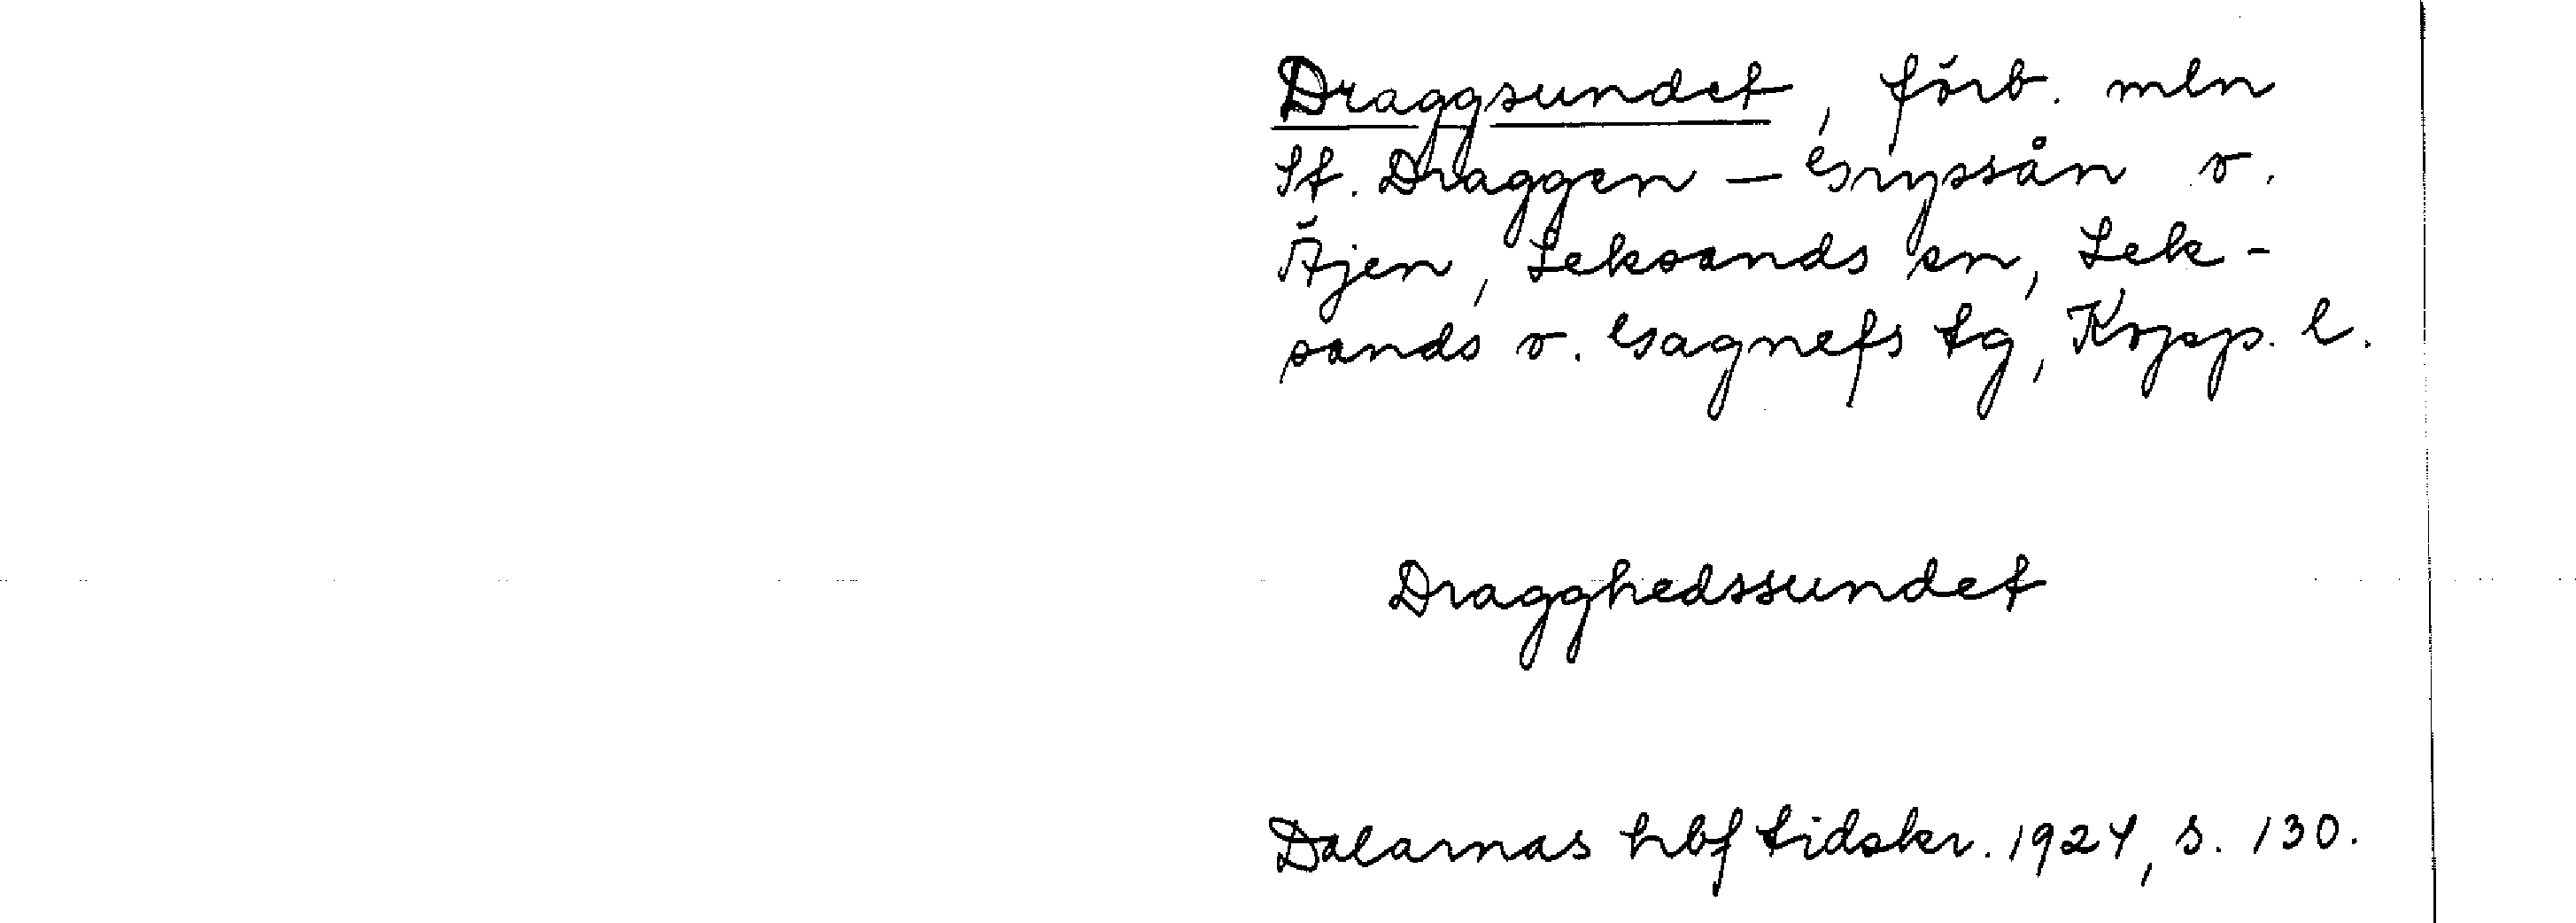 Draggsundet, förb. mln
St. Draggen – Gryssån o.
Äjen, Leksands sn, Lek-
sands o. Gagnefs tg, Kopp. l.
Dragghedssundet
Dalarnas hbf tidskr. 1924, s. 130.